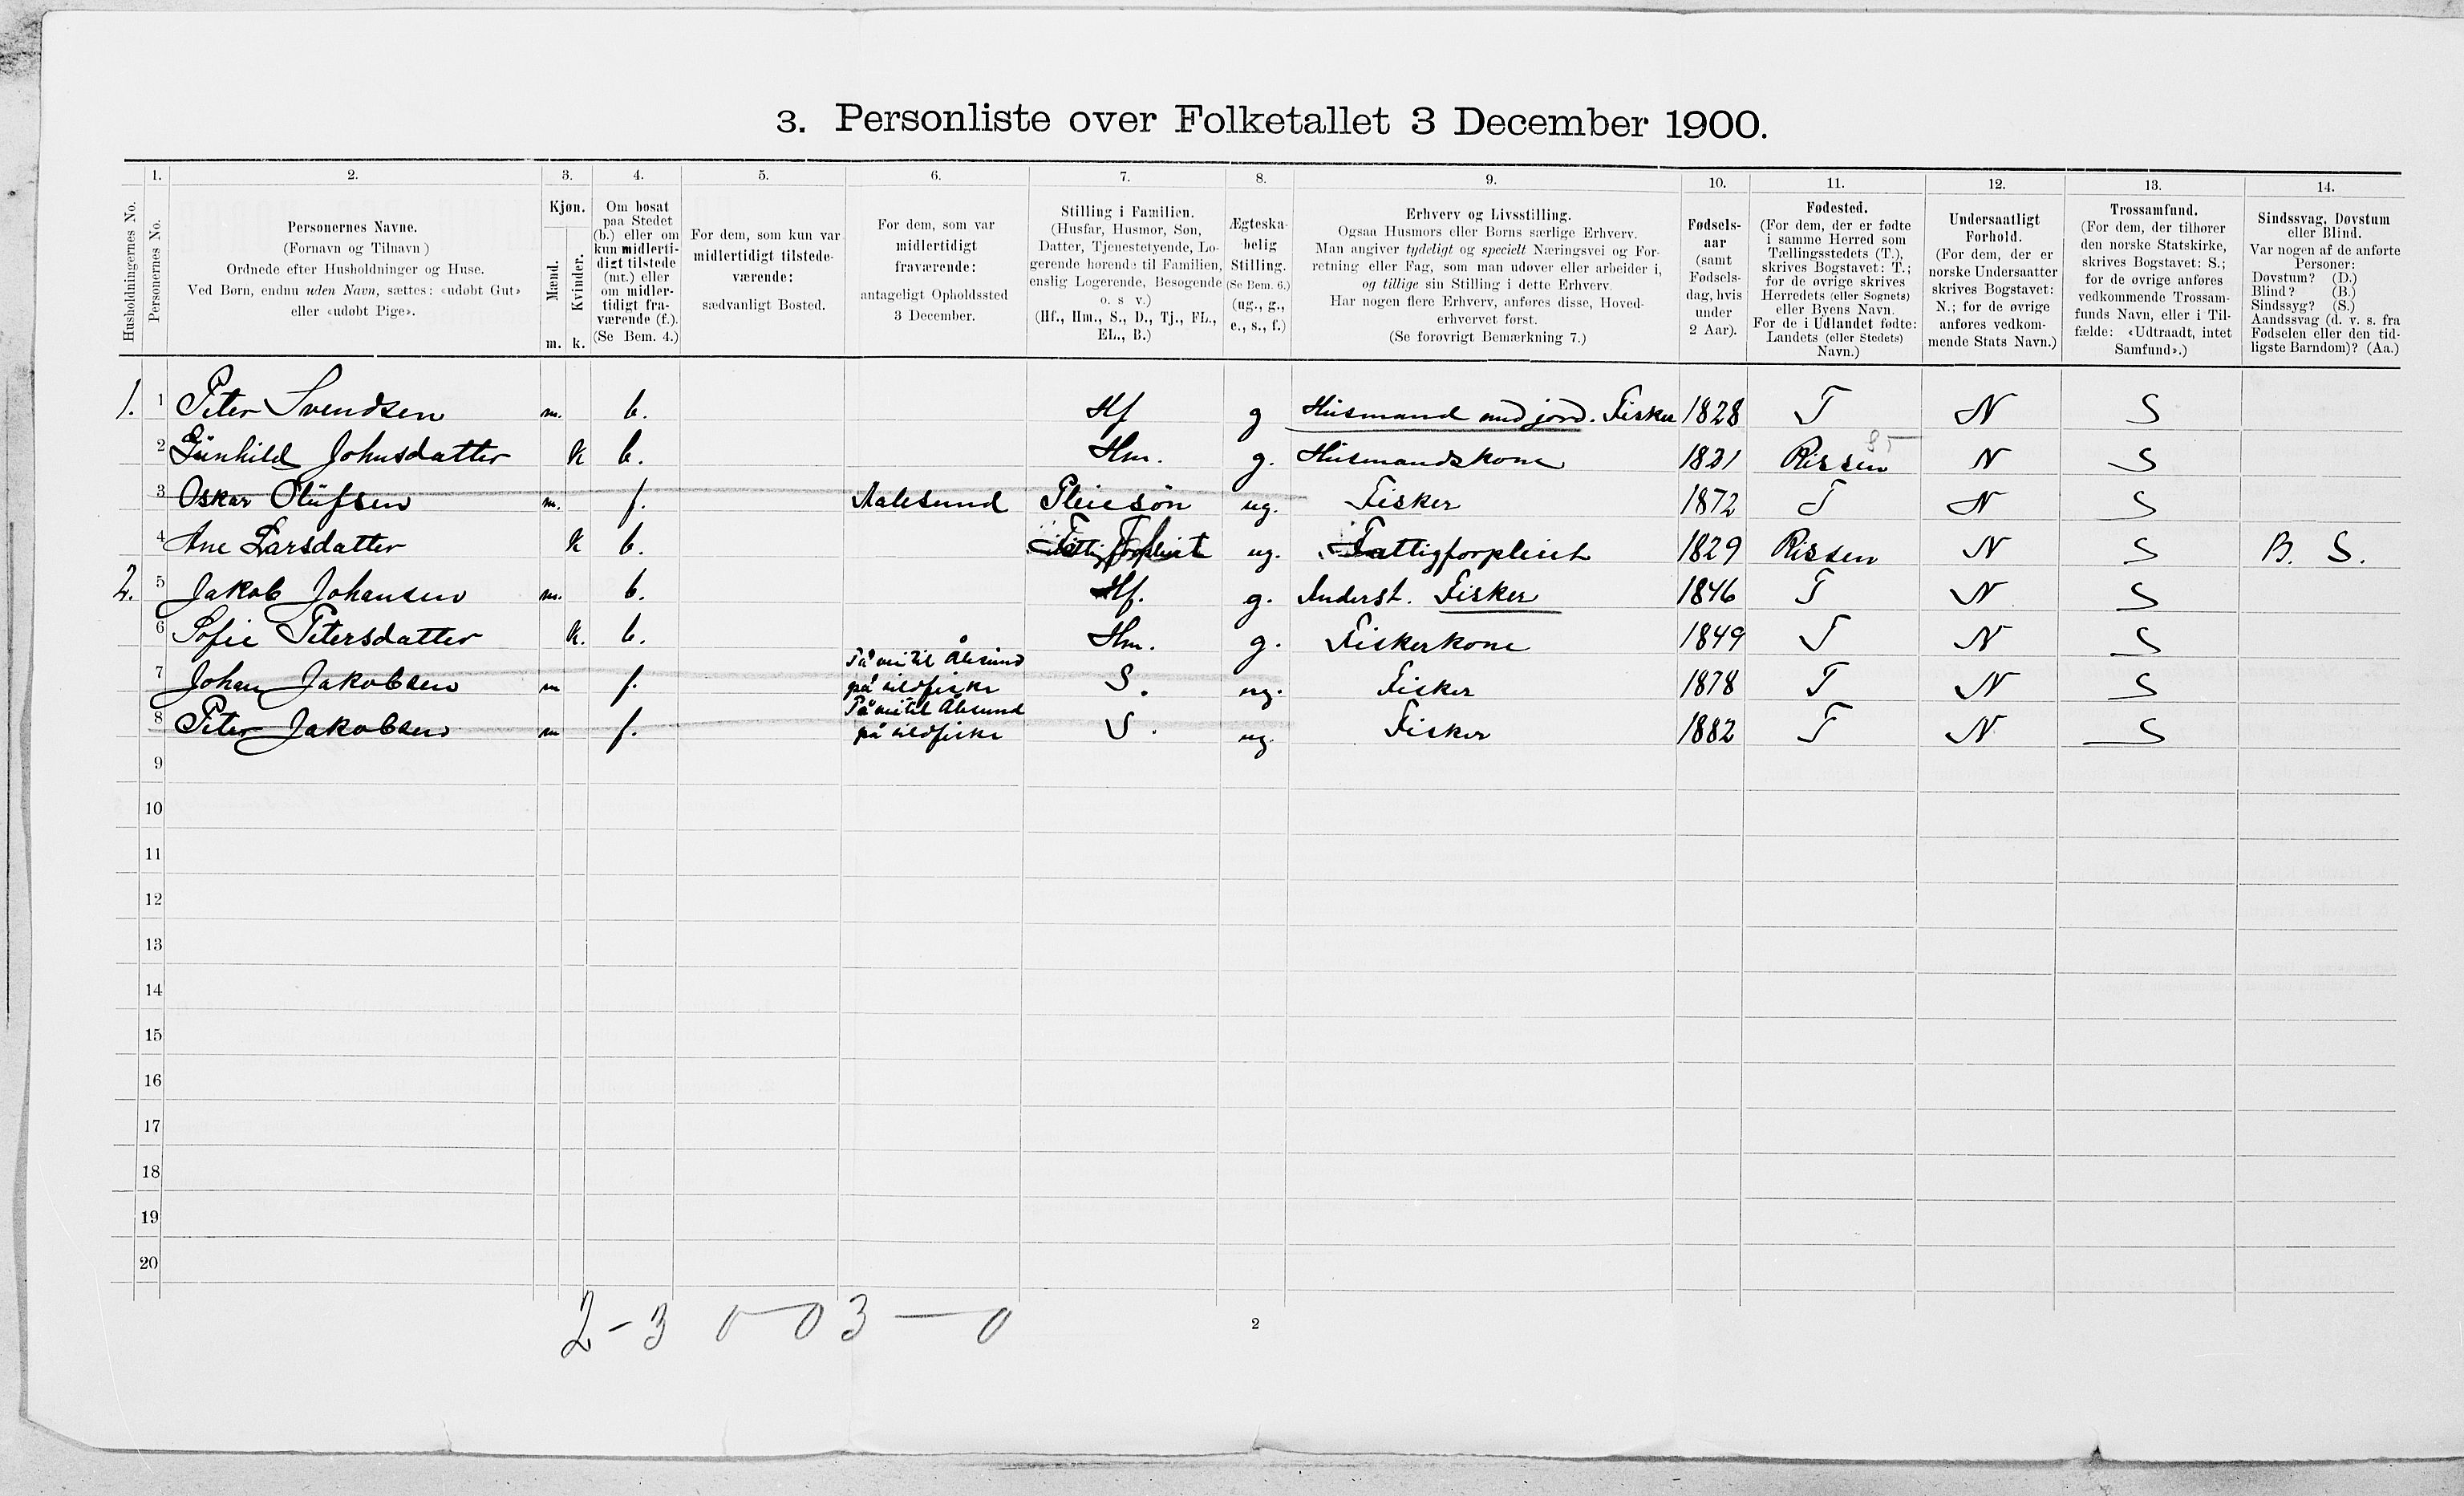 3. Personliste over Folketallet 3 December 1900.
1. 2. 3. 4. 5. 6. 7. 8. 9. 10. 11. 12. 13. 14.
Husholdningernes No.
Personernes No.
Personernes Navne.
(Fornavn og Tilnavn)
Ordnede efter Husholdninger og Huse.
Ved Børn, endnu uden Navn, sættes: «udøbt Gut»
eller «udøbt Pige».
Kjøn.
Mænd.
Kvinder.
m. k.
Om bosat
paa Stedet
(b.) eller om
kun midlerti-
digt tilstede
(mt.) eller
om midler-
tidigt fra-
værende (f.).
(Se Bem. 4.)
For dem, som kun var
midlertidigt tilstede-
værende:
sædvanligt Bosted.
For dem, som var
midlertidigt
fraværende:
antageligt Opholdssted
3 December.
Stilling i Familien.
(Husfar, Husmor, Søn,
Datter, Tjenestetyende, Lo-
gerende hørende til Familien,
enslig Logerende, Besøgende
o. s v.)
(Hf., Hm., S., D., Tj., FL.,
EL., B.)
Ægteska-
belig
Stilling.
(Se Bem. 6.)
(ug., g.,
e., s., f.)
Erhverv og Livsstilling.
Ogsaa Husmors eller Børns særlige Erhverv.
Man angiver tydeligt og specielt Næringsvei og For-
retning eller Fag, som man udøver eller arbeider i,
og tillige sin Stilling i dette Erhverv.
Har nogen flere Erhverv, anføres disse, Hoved-
erhvervet først.
(Se forøvrigt Bemærkning 7.)
Fødsels-
aar
(samt
Fødsels-
dag, hvis
under
2 Aar).
Fødested.
(For dem, der er fødte
i samme Herred som
Tællingsstedets (T.),
skrives Bogstavet: T.;
for de øvrige skrives
Herredets (eller Sognets)
eller Byens Navn.
For de i Udlandet fødte:
Landets (eller Stedets)
Navn.)
Undersaatligt
Forhold.
(For dem, der er
norske Undersaatter
skrives Bogstavet:
N.; for de øvrige
anføres vedkom-
mende Stats Navn.)
Trossamfund.
(For dem, der tilhører
den norske Statskirke,
skrives Bogstavet: S.;
for de øvrige anføres
vedkommende Trossam-
funds Navn, eller i Til-
fælde: «Udtraadt, intet
Samfund».)
Sindssvag, Døvstum
eller Blind.
Var nogen af de anførte
Personer:
Døvstum? (D.)
Blind? (B.)
Sindssyg? (S.)
Aandssvag (d. v. s. fra
Fødselen eller den tid-
ligste Barndom)? (Aa.)
1. 1 Peter Svendsen m. b. Hf g Husmand med jord. Fisker 1828 T N S
2 Gunhild Johnsdatter k b. Hm. g. Husmandskone 1821 Rissen N S
3 Oskar Olufsen m. f. Aalesund Pleiesøn ug. Fisker 1872 T N S
4 Ane Larsdatter k b. ug. Fattigforpleiet 1829 Rissen N S B. S.
2. 5 Jakob Johansen m. b. Hf. g. Inderst. Fisker 1846 T N S
6 Sofie Petersdatter k. b. Hm. g. Fiskerkone 1849 T N S
På vei til Ålesund
7 Johan Jakobsen m f. på sildfiske S. ug. Fisker 1878 T N S
På vei til Ålesund
8 Peter Jakobsen m f. på sildfiske S. ug. Fisker 1882 T N S
9
10
11
12
13
14
15
16
17
18
19
20
2-3 0-0 3-0
2